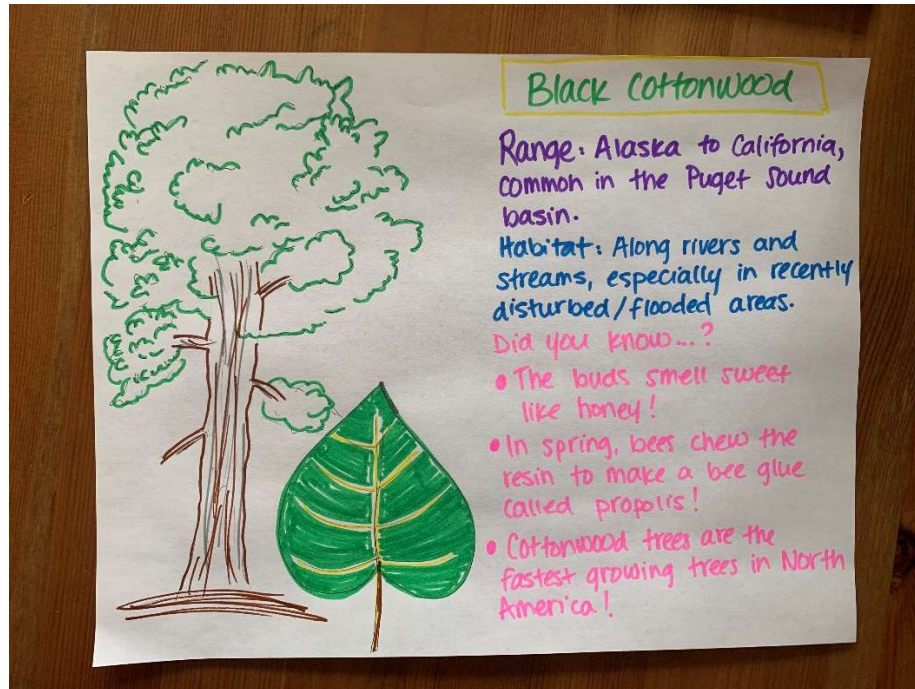 Black Cottonwood
Range: Alaska to California,
common in the Puget Sound
basin.
Habitat: Along rivers and
streams, especially in recently
disturbed/flooded areas.
Did you know...?
• The buds smell sweet
like honey!
• In spring, bees chew the
resin to make a bee glue
called propolis!
• Cottonwood trees are the
fastest growing trees in North
America!